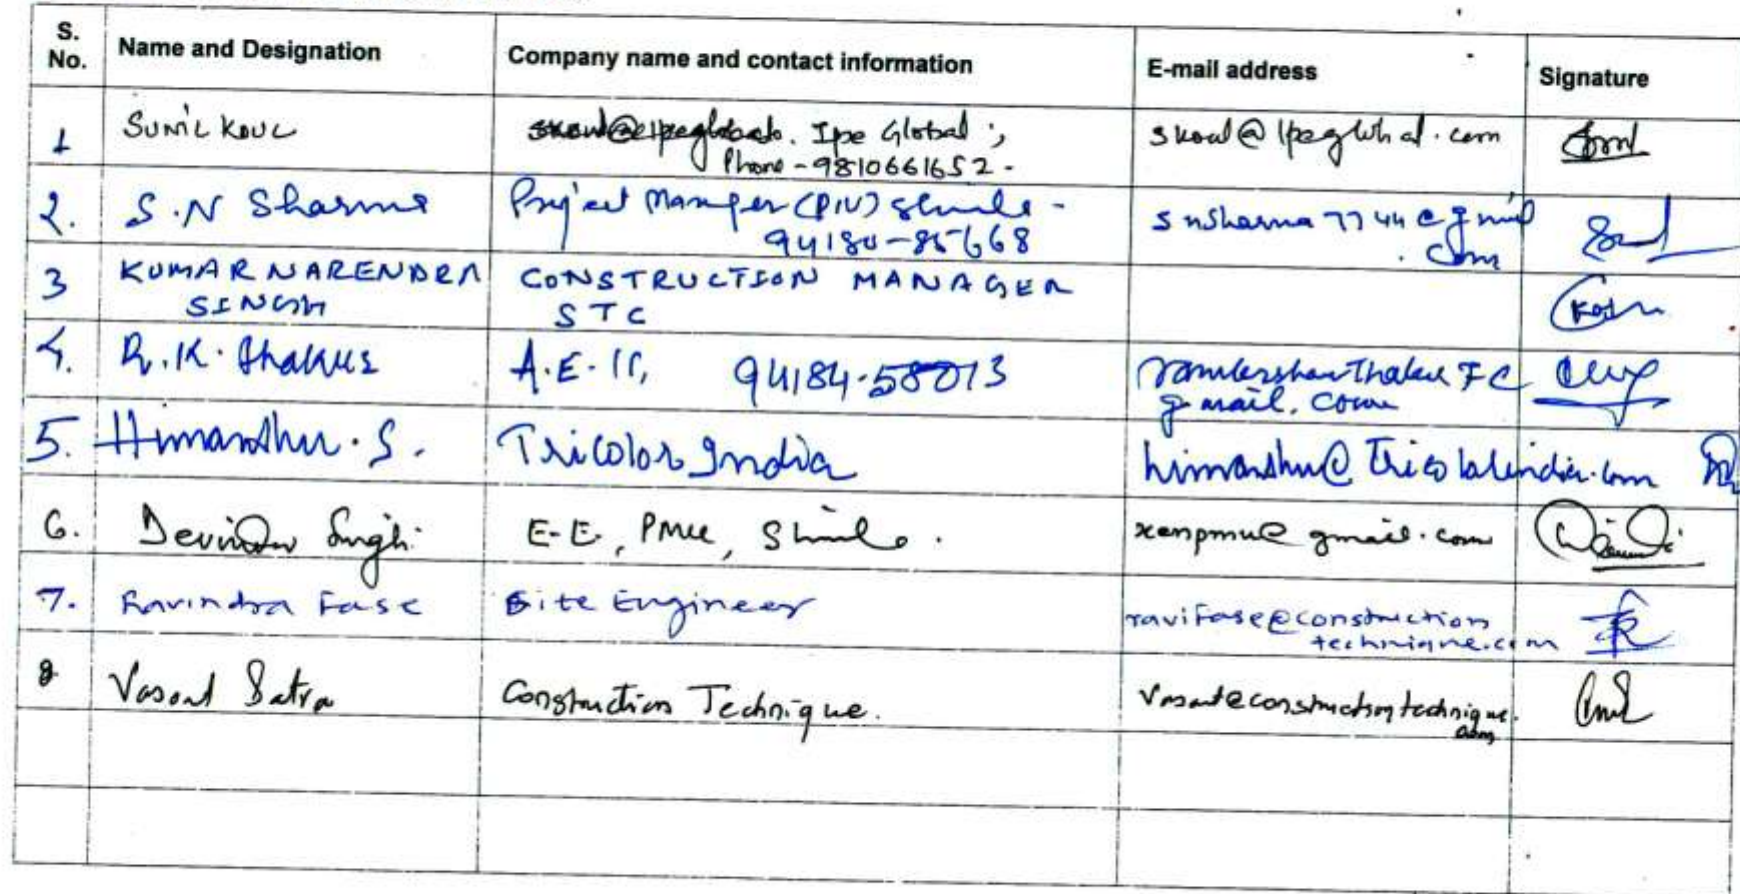 S. No. Name and Designation Company name and contact information E-mail address Signature
1 SUNIL KOUL Ipe Global ; skoul@ipeglobal.com
Phone - 9810661652 -
2. S.N Sharma Project Manager (PIU) Shimla - snsharma7744@gmail
94180-85668 .com
3 KUMAR NARENDRA CONSTRUCTION MANAGER
SINGH STC
4. R.K. Thakur A.E. 94184-58013
gmail.com
5. Himanshu.S. Tricolor India himanshu@tricolorindia.com
6. Devinder Singh. E.E, PMU, Shimla. xenpmu@gmail.com
7. Ravindra Fase Site Engineer ravifase@construction
technique.com
8 Vasant Batra Construction Technique. Vasant@constructiontechnique.
com